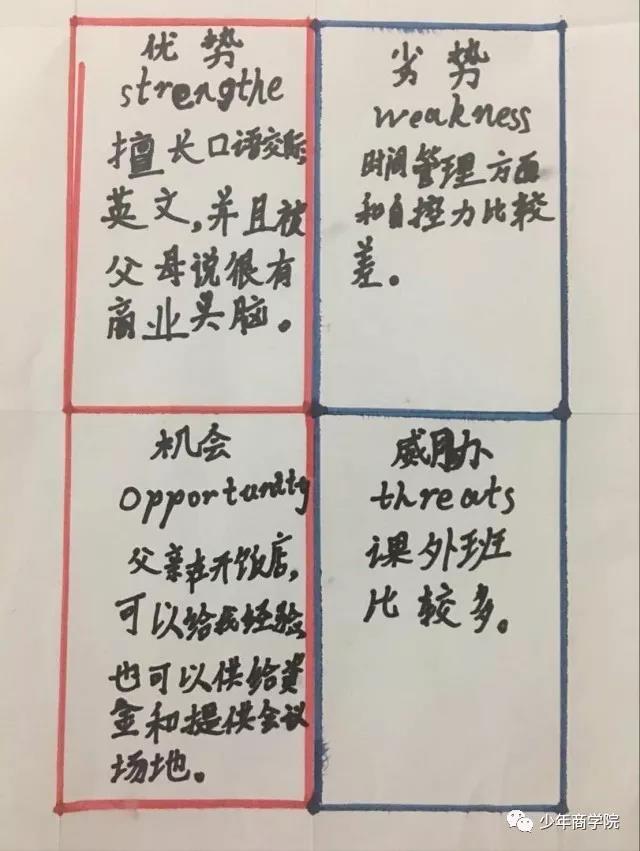 优势
strengthe
擅长口语交际
英文,并且被
父母说很有
商业头脑。
劣势
weakness
时间管理方面
和自控力比较
差。
机会
opportunity
父亲在开饭店,
可以给我经验
也可以供给资
金和提供会议
场地。
威胁
threats
课外班
比较多。
少年商学院